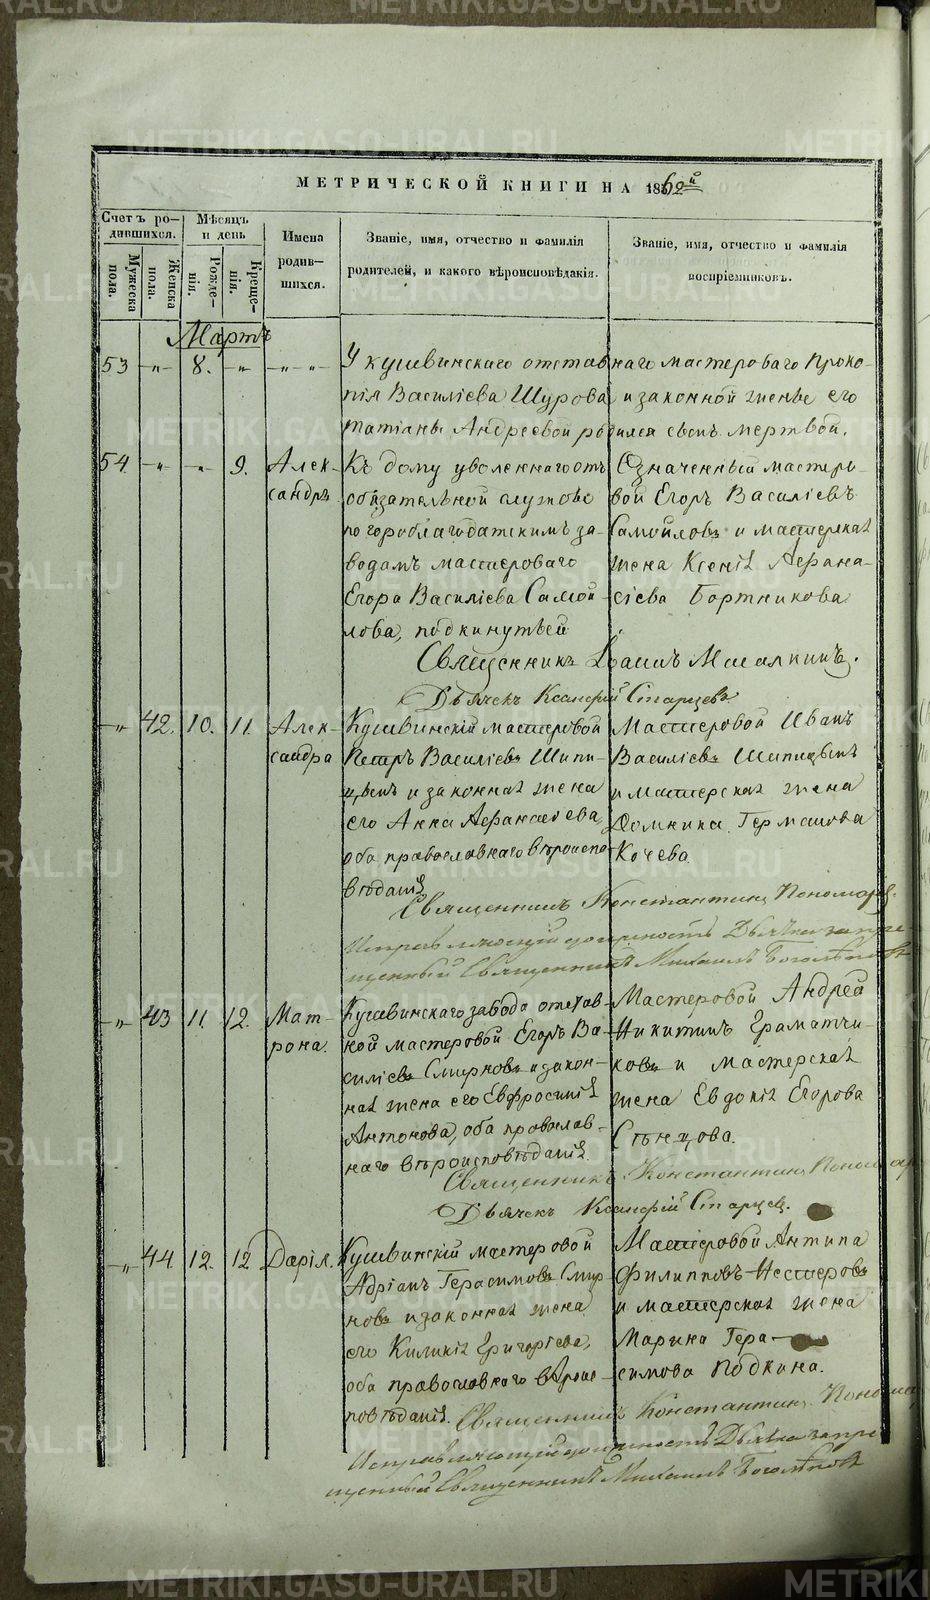 МЕТРИЧЕСКОЙ КНИГИ НА 1862й
Счетъ ро-
дившихся.
Мужеска
пола.
Женска
пола.
Мѣсяцъ
и день
Рожде-
нія.
Креще-
нія.
Имена
родив-
шихся.
Званіе, имя, отчество и фамилія
родителей, и какого вѣроисповѣданія.
Званіе, имя, отчество и фамилія
воспріемниковъ.
Мартъ
53 „ 8. „ „ „ У кушвинскаго отставнаго мастероваго Проко-
пія Василіева Шурова и законной женые его
татіаны Андреевой родился сынъ мертвой.
54 „ „ 9. Алек-
сандръ
Къ дому уволеннаго отъ
обязательной службы
по гороблагодатскимъ за-
водамъ мастероваго
Егора Василіева Самой-
лова, подкинутый
Означенный мастеро-
вой Егоръ Василіевъ
Самойловъ и мастерская
жена Ксенія Афана-
сіева Бортникова
Священникъ Іоаннъ Масалкинъ.
Дьячекъ Ксанфій Старцевъ
„ 42. 10. 11. Алек-
сандра
Кушвинскій мастеровой
Петръ Василіевъ Шипи-
цынъ и законная жена
его Анна Афанасіева,
оба православнаго вѣроиспо-
вѣданія
Мастеровой Иванъ
Василіевъ Шипицынъ
и мастерская жена
Домника Германова
Кочева.
Священникъ Константинъ Пономарев.
Исправляющій должность Дьячка запре-
щенный Священникъ Михаилъ Боголѣповъ
„ 43 11. 12. Мат-
рона.
Кушвинскаго завода отстав-
ной мастеровой Егоръ Ва-
силіевъ Смирновъ и закон-
ная жена его Евфросинія
Антонова, оба православ-
наго вѣроисповѣданія.
Мастеровой Андрей
Никитинъ Граматчи-
ковъ и мастерская
жена Евдокія Егорова
Сѣнцова.
Священникъ Константинъ Пономар
Дьячекъ Ксанфій Старцев.
„ 44 12. 12 Дарія.
Кушвинскій мастеровой
Адріанъ Герасимовъ Смир-
новъ и законная жена
его Киликія Григоріева,
оба православнаго вѣроис-
повѣданія.
Мастеровой Антипа
Филипповъ Нестеровъ
и мастерская жена
Марина Гера-
симова Подкина.
Священникъ Константинъ Пономар
Исправляющій должность Дьячка запре-
щенный Священникъ Михаилъ Боголѣповъ
METRIKI.GASO-URAL.RU